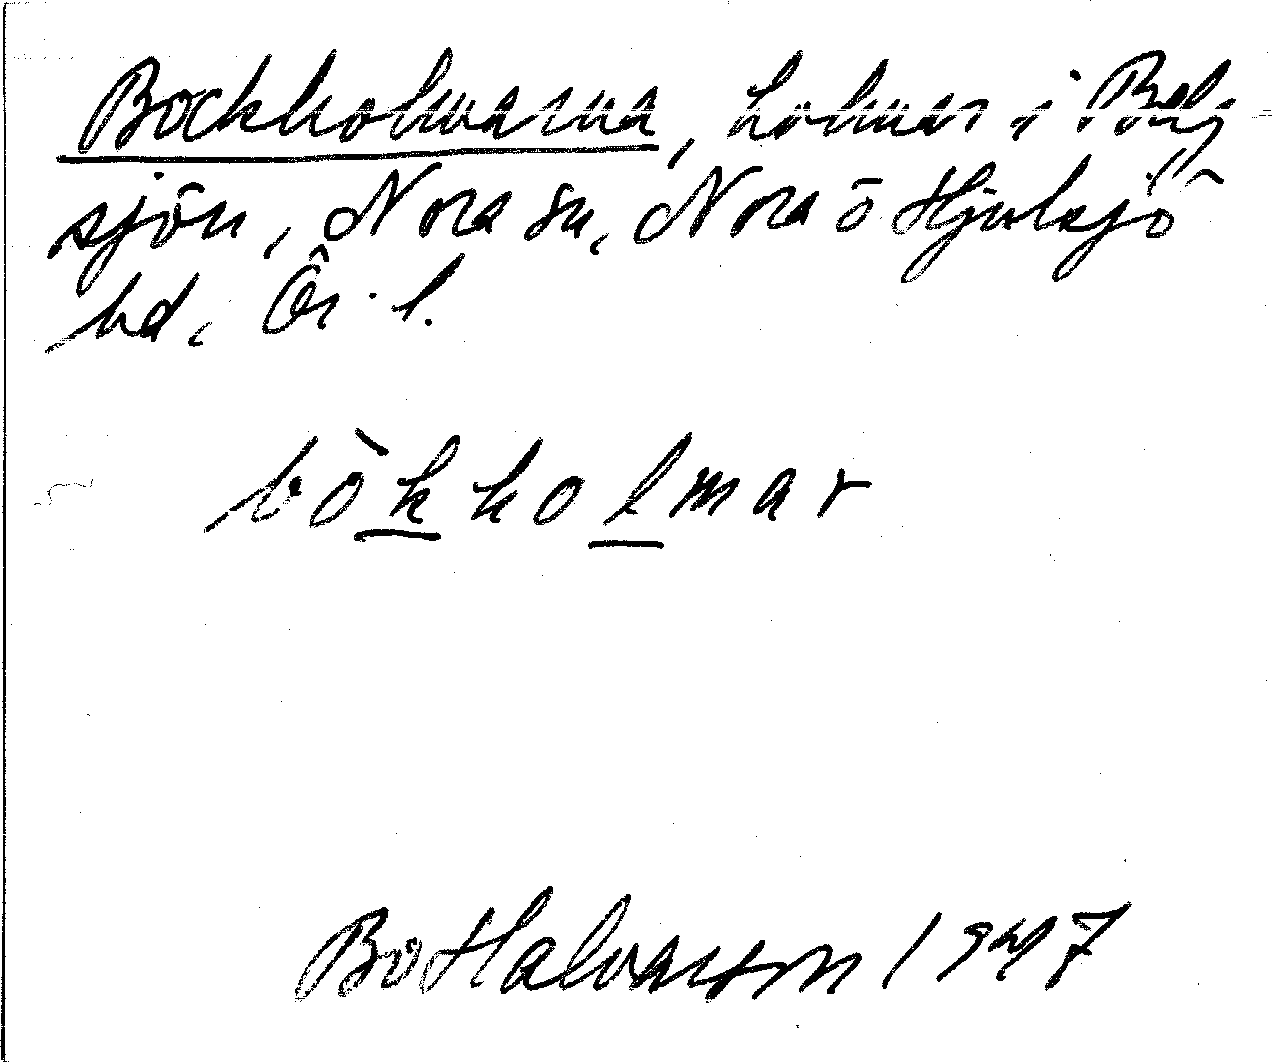 Bockholmarna, holmar i Bälg-
sjön, Nora sn, Nora o Hjulsjö
bd, Ör. l.
bòkholmar
Bo Halvarson 1947